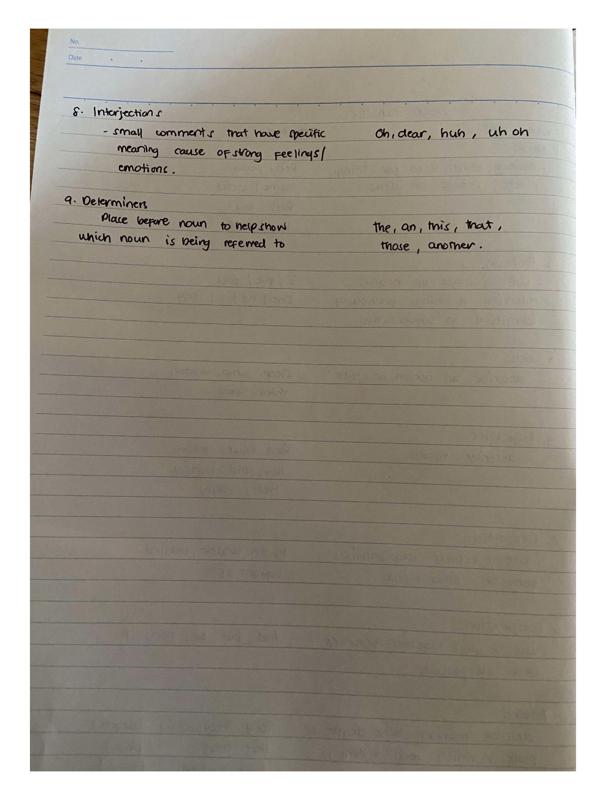 No.
Date
8. Interjections
- small comments that have specific    Oh, dear, huh, uh oh
meaning cause of strong feelings/
emotions.
9. Determiners
Place before noun to help show    the, an, this, that,
which noun is being referred to    those, another.